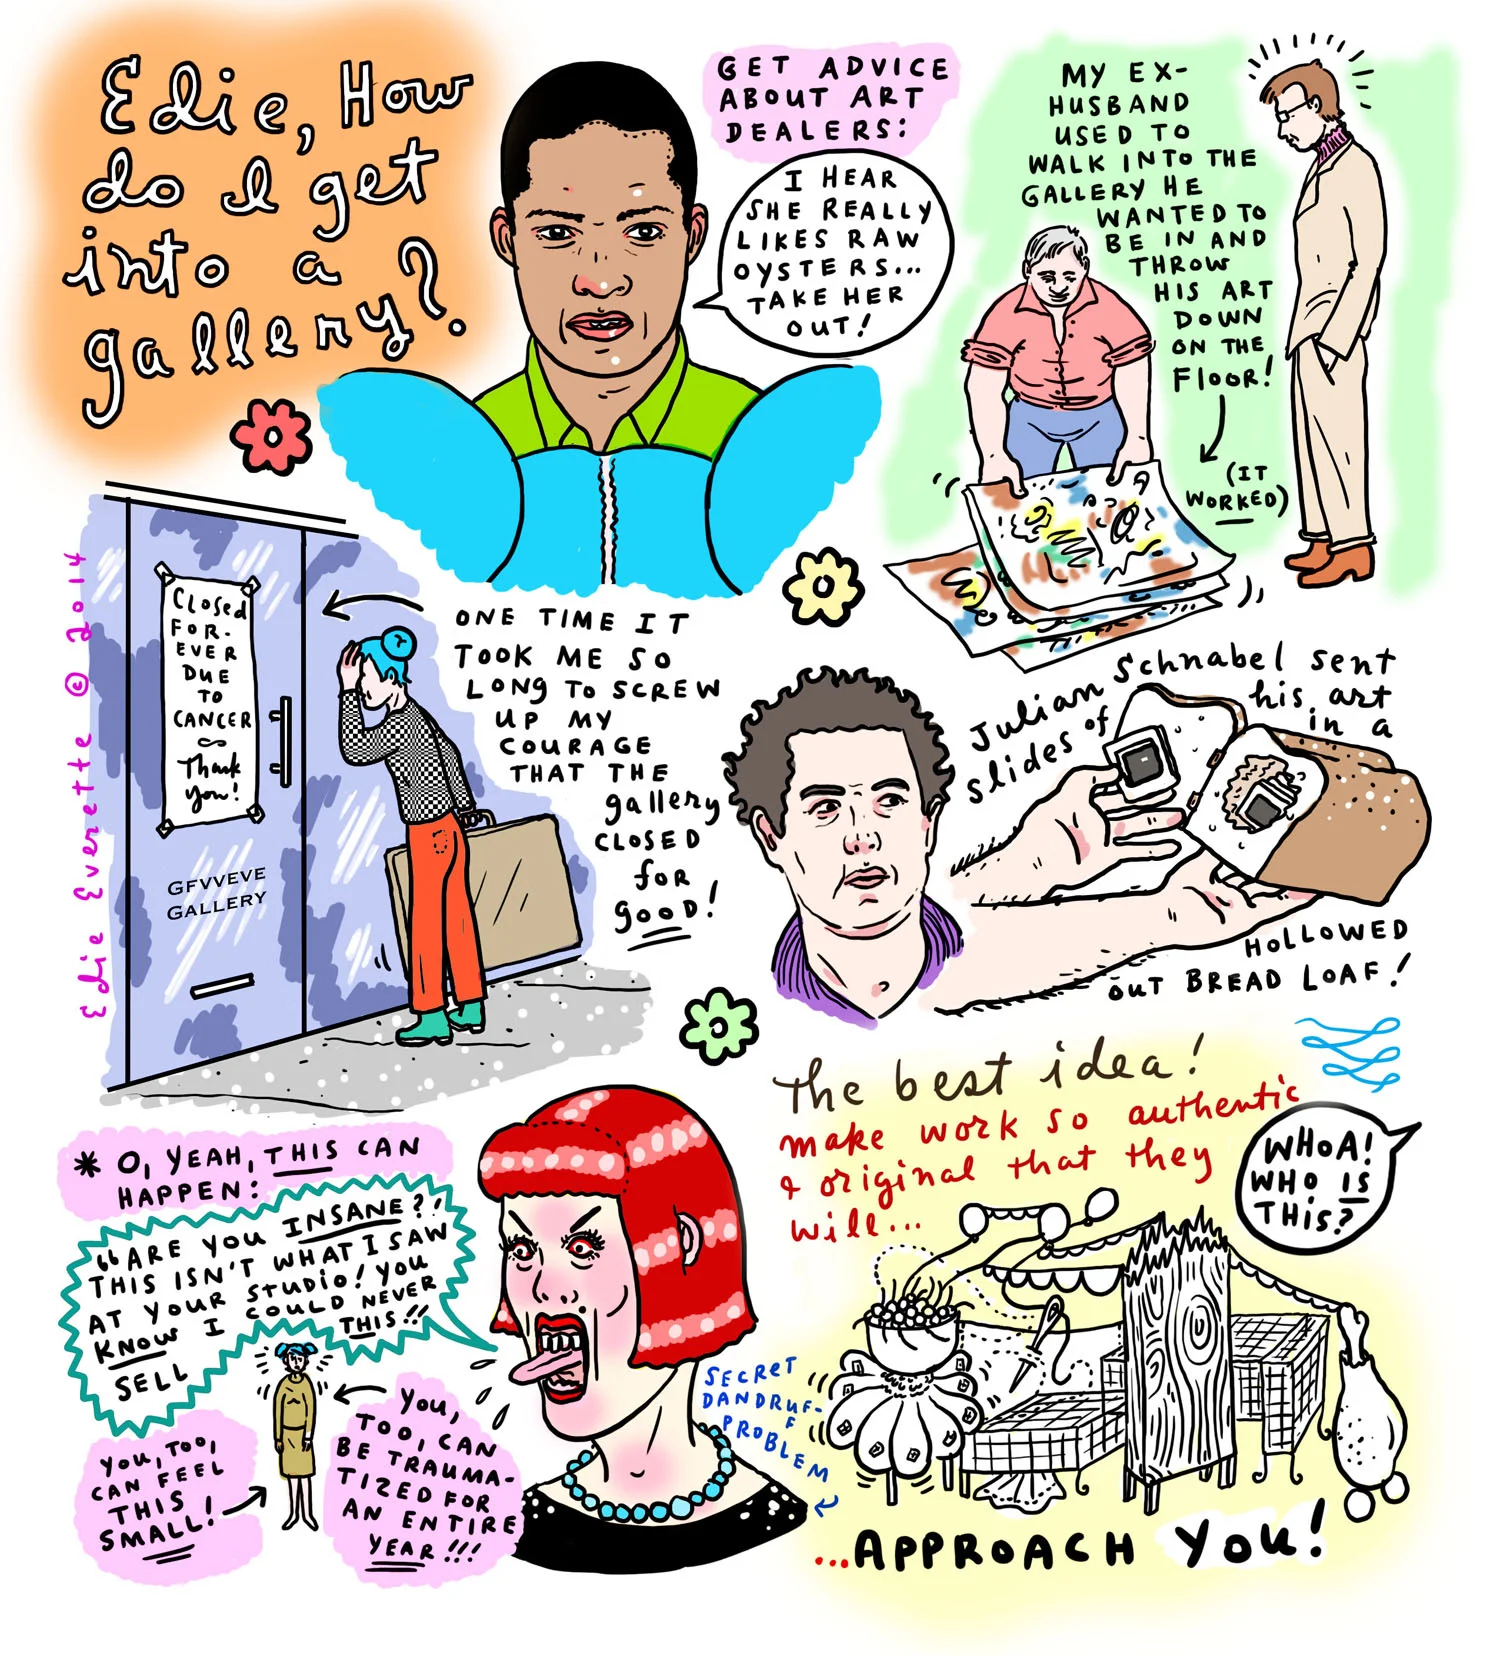 Edie, How
do I get
into a
gallery?
GET ADVICE
ABOUT ART
DEALERS:
I HEAR
SHE REALLY
LIKES RAW
OYSTERS...
TAKE HER
OUT!
MY EX-
HUSBAND
USED TO
WALK INTO THE
GALLERY HE
WANTED TO
BE IN AND
THROW
HIS ART
DOWN
ON THE
FLOOR!
(IT
WORKED)
Closed
FOR-
EVER
DUE
TO
CANCER
Thank
you!
GFVVEVE
GALLERY
Edie Everette © 2014
ONE TIME IT
TOOK ME SO
LONG TO SCREW
UP MY
COURAGE
THAT THE
gallery
CLOSED
for
good!
Julian Schnabel sent
slides of his art
in a
HOLLOWED
OUT BREAD LOAF!
* O, YEAH, THIS CAN
HAPPEN:
"ARE YOU INSANE?!
THIS ISN'T WHAT I SAW
AT YOUR STUDIO! YOU
KNOW I COULD NEVER
SELL THIS!!
YOU, TOO,
CAN FEEL
THIS
SMALL!
YOU,
TOO, CAN
BE TRAUMA-
TIZED FOR
AN ENTIRE
YEAR!!!
SECRET
DANDRUF-
F
PROBLEM
The best idea!
make work so authentic
& original that they
will...
WHOA!
WHO IS
THIS?
...APPROACH YOU!